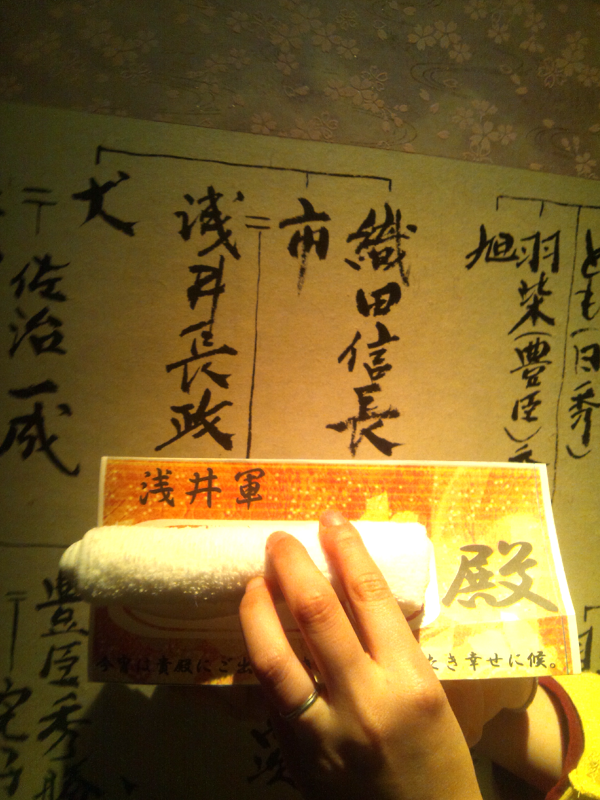 とも(日秀)
羽柴(豊臣)秀
旭
織田信長
市
浅井長政
犬
佐治一成
豊臣秀勝
浅井軍
殿
今宵は貴殿にご出
たき幸せに候。